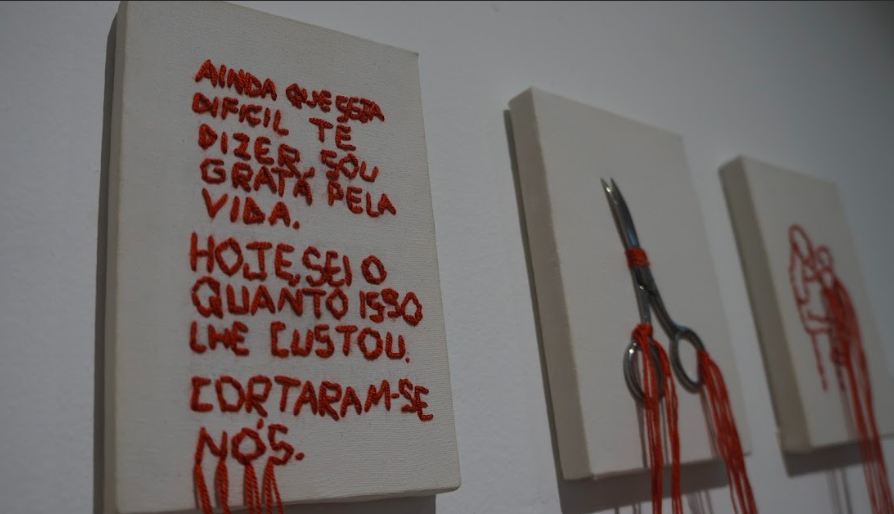 AINDA QUE SEJA
DIFICIL TE
DIZER, SOU
GRATA PELA
VIDA.
HOJE, SEI O
QUANTO ISSO
LHE CUSTOU.
CORTARAM-SE
NÓS.